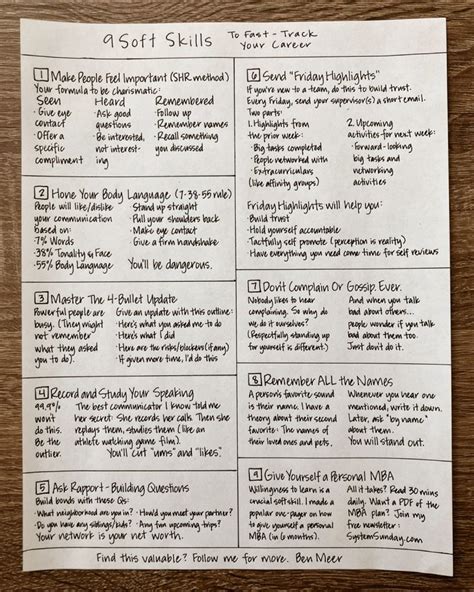 9 Soft Skills To Fast-Track
Your Career
1 Make People Feel Important (SHR method)
Your formula to be charismatic:
Seen Heard Remembered
· Give eye · Ask good · Follow up
contact questions · Remember names
· Offer a · Be interested, · Recall something
specific not interest- you discussed
compliment ing
2 Hone Your Body Language (7-38-55 rule)
People will like/dislike · Stand up straight
your communication · Pull your shoulders back
based on: · Make eye contact
· 7% Words · Give a firm handshake
· 38% Tonality & Face
· 55% Body Language You'll be dangerous.
3 Master The 4-Bullet Update
Powerful people are Give an update with this outline:
busy. (They might · Here's what you asked me to do
not remember · Here's what I did
what they asked · Here are the risks/blockers (if any)
you to do). · If given more time, I'd do this
4 Record and Study Your Speaking
99.9% The best communicator I know told me
wont her secret: She records her calls. Then she
do this. replays them, studies them (like an
Be the athlete watching game film).
outlier. You'll cut "ums" and "likes."
5 Ask Rapport-Building Questions
Build bonds with these Qs:
· What neighborhood are you in? · How'd you meet your partner?
· Do you have any siblings/kids? · Any fun upcoming trips?
Your network is your net worth.
6 Send "Friday Highlights"
If you're new to a team, do this to build trust.
Every Friday, send your supervisor(s) a short email.
Two parts:
1. Highlights from 2. Upcoming
the prior week: activities for next week:
· Big tasks completed · Forward-looking
· People networked with big tasks and
· Extracurriculars networking
(like affinity groups) activities
Friday Highlights will help you:
· Build trust
· Hold yourself accountable
· Tactfully self promote (perception is reality)
· Have everything you need come time for self reviews
7 Don't Complain Or Gossip. Ever.
Nobody likes to hear And when you talk
complaining. So why do bad about others...
we do it ourselves? people wonder if you talk
(Respectfully standing up bad about them too.
for yourself is different.) Just don't do it.
8 Remember ALL the Names
A person's favorite sound Whenever you hear one
is their name. I have a mentioned, write it down.
theory about their second Later, ask "by name"
favorite: The names of about them.
their loved ones and pets. You will stand out.
9 Give Yourself a Personal MBA
Willingness to learn is a All it takes? Read 30 mins
crucial soft skill. I made a daily. Want a PDF of the
popular one-pager on how MBA plan? Join my
to give yourself a personal free newsletter:
MBA (in 6 months). SystemSunday.com
Find this valuable? Follow me for more. Ben Meer